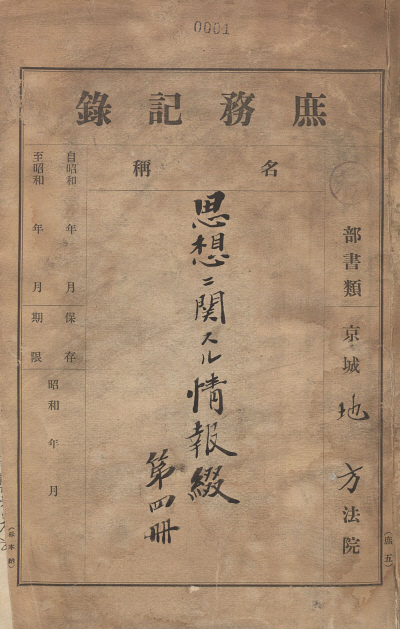 0001
庶務記錄
部書類
京城地方法院
名稱
思想ニ関スル情報綴
第四冊
自昭和 年 月
至昭和 年 月
保存
期限
昭和 年 月
(庶五)